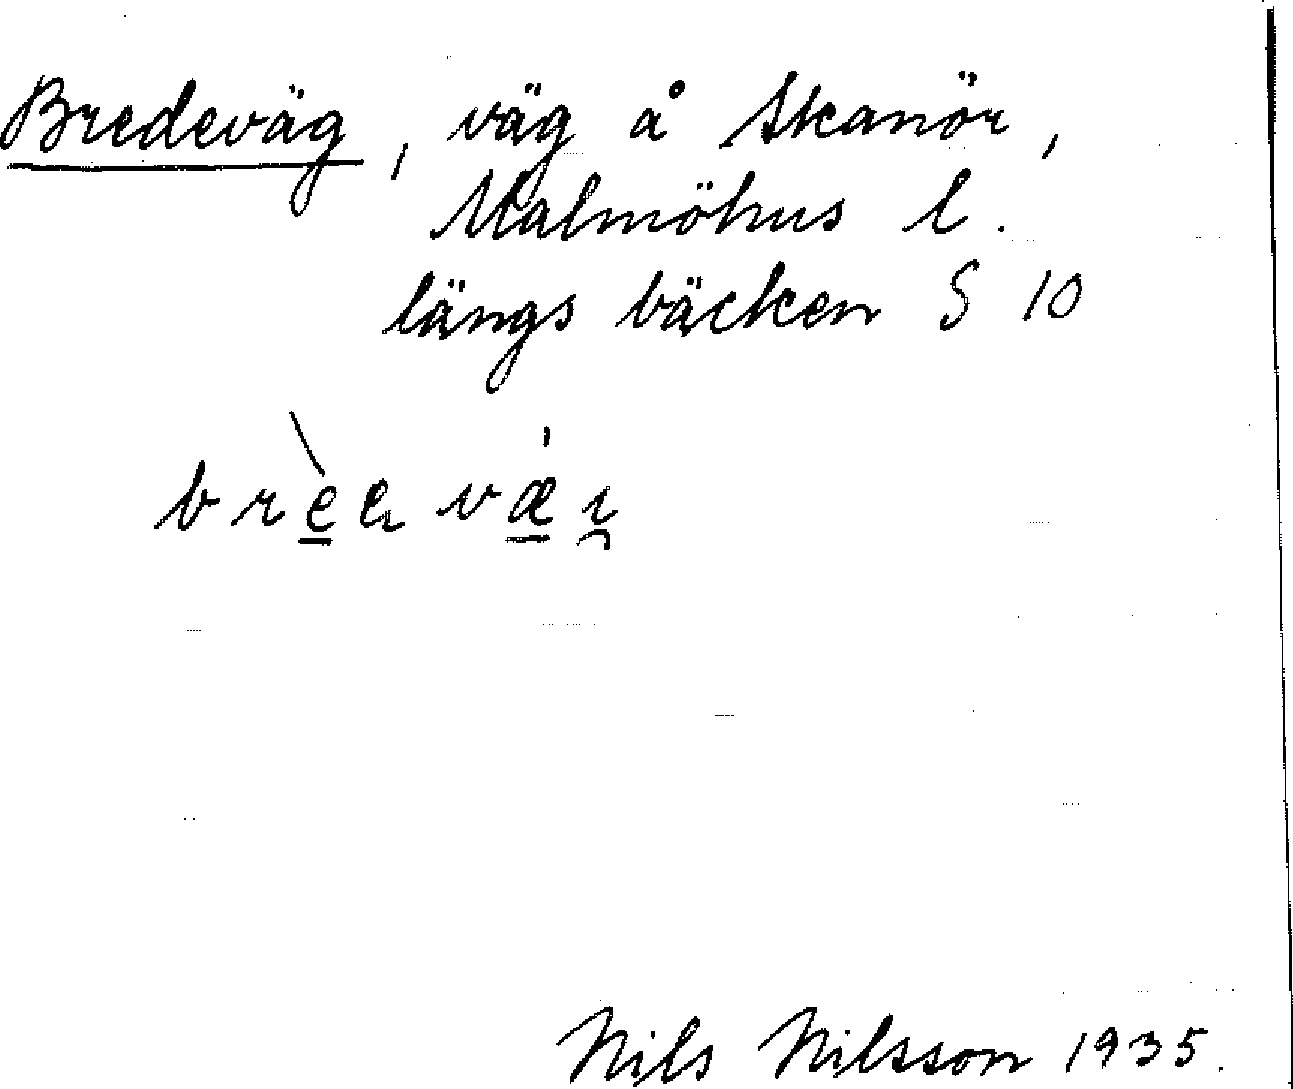 Bredeväg, väg å Skanör,
Malmöhus l.
längs bäcken S 10
brèe væ̍ı
Nils Nilsson 1935.